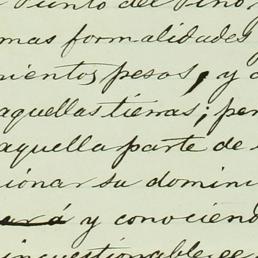 Punto del Pino,
mas formalidades y
cientos pesos, y a
aquellas tierras; per
aquella parte de
cionar su domini
y conociend
incuestionable se